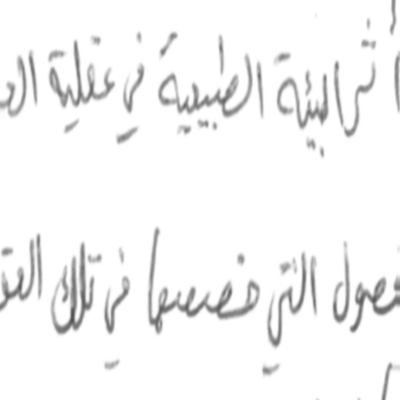 أثر البيئة الطبيعية في عقلية
فصول التي خصصها في تلك